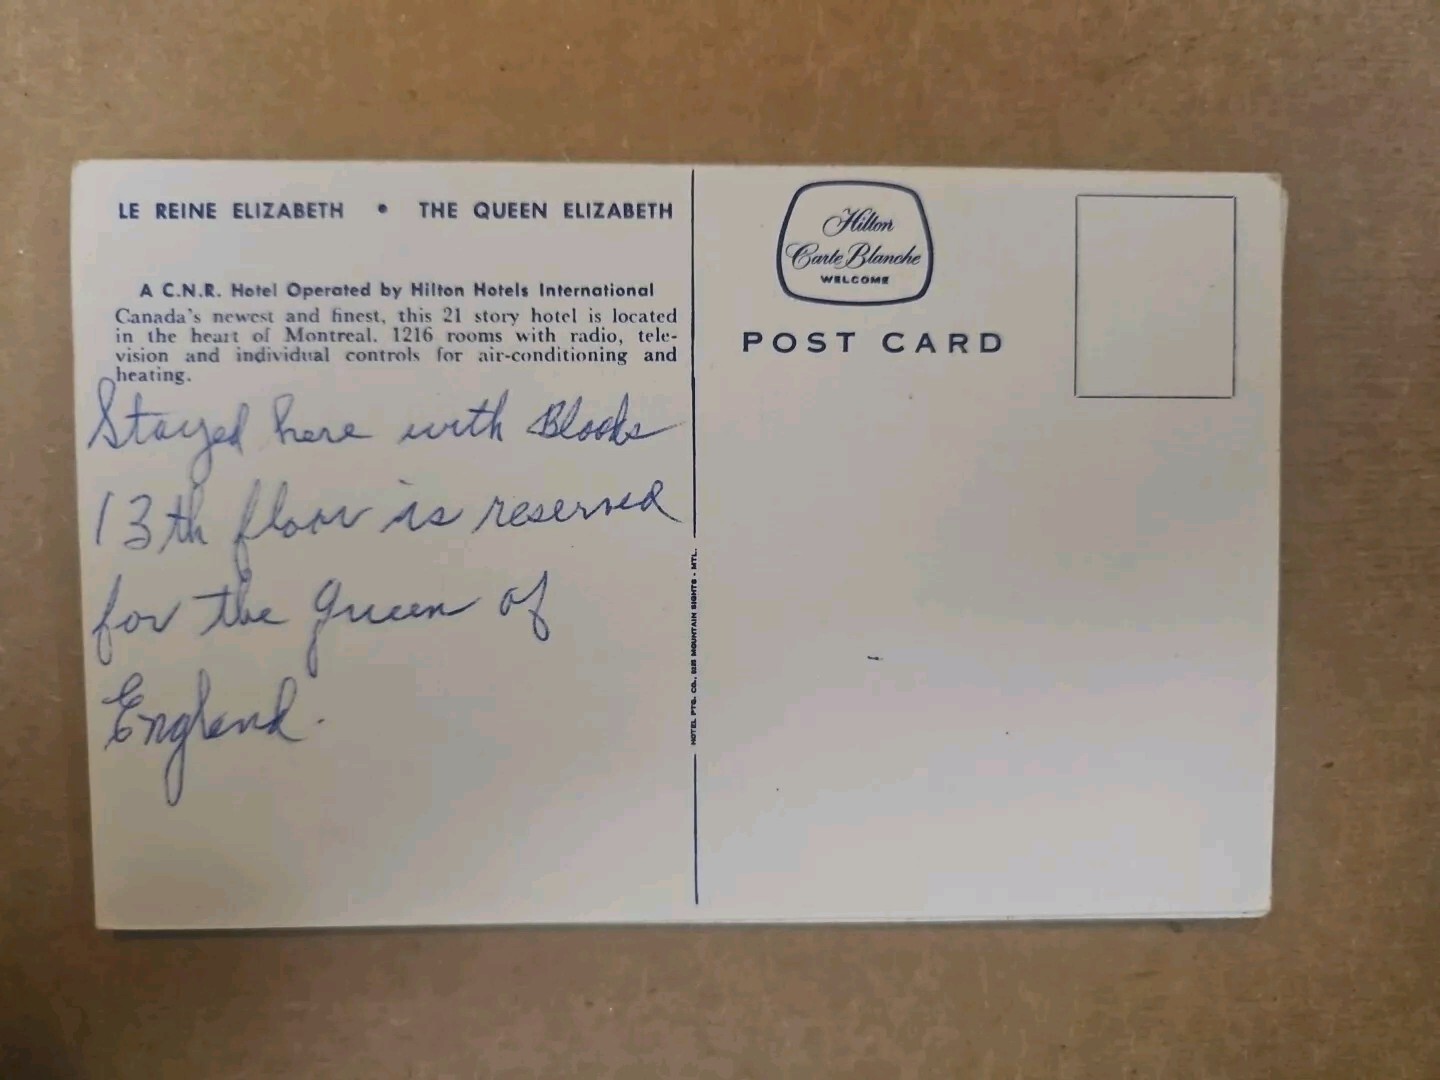 LE REINE ELIZABETH • THE QUEEN ELIZABETH
A C.N.R. Hotel Operated by Hilton Hotels International
Canada's newest and finest, this 21 story hotel is located
in the heart of Montreal. 1216 rooms with radio, tele-
vision and individual controls for air-conditioning and
heating.
Stayed here with
13th floor is reserved
for the Queen of
England.
HOTEL PTG. CO., MOUNTAIN SIGHTS - MTL.
Hilton
Carte Blanche
WELCOME
POST CARD